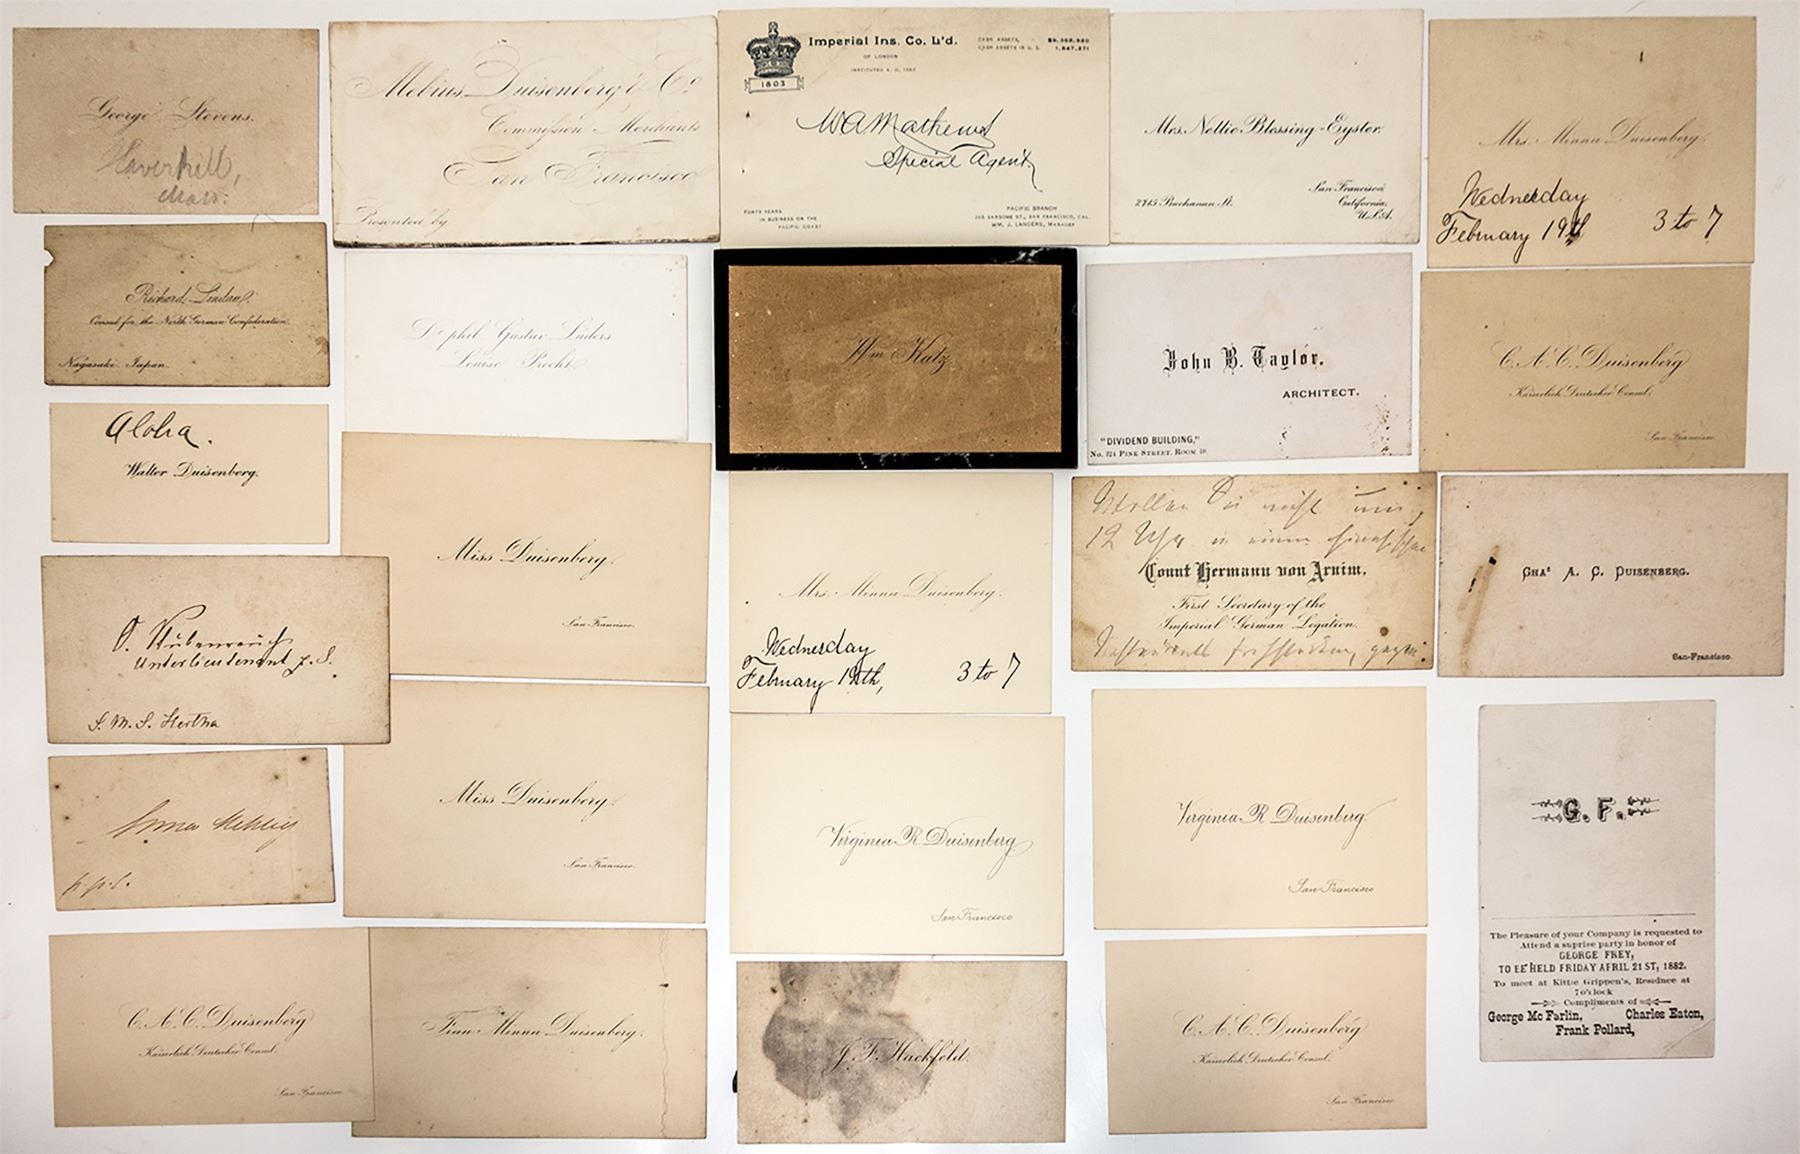 George Stevens.
Haverhill,
Mass.
Mebius, Duisenberg & Co
Commission Merchants
San Francisco
Presented by
1803
Imperial Ins. Co. L't'd.
OF LONDON
INSTITUTED A. D. 1803
CASH ASSETS,
CASH ASSETS IN U. S.
WA Mathews
Special Agent,
FORTY YEARS
IN BUSINESS ON THE
PACIFIC COAST
PACIFIC BRANCH
SANSOME ST., SAN FRANCISCO, CAL.
WM. J. LANDERS, MANAGER
Mrs. Nettie Blessing-Eyster.
2715 Buchanan St.
San Francisco,
California,
U.S.A.
Mrs. Minna Duisenberg.
Wednesday
February 19th 3 to 7
Richard Lindau.
Consul for the North German Confederation.
Nagasaki. Japan.
Dr phil Gustav Lüders
Louise Precht
Wm Katz
John B. Taylor.
ARCHITECT.
"DIVIDEND BUILDING,"
No. 324 PINE STREET. ROOM
C. A. C. Duisenberg
Kaiserlich Deutscher Consul.
San Francisco
Aloha.
Walter Duisenberg.
Miss Duisenberg.
San Francisco.
Mrs. Minna Duisenberg.
Wednesday
February 19th, 3 to 7
Wollen Sie nicht um
12 Uhr in einem
Count Hermann von Arnim.
First Secretary of the
Imperial German Legation.
CHAS A. C. DUISENBERG.
San-Francisco.
Unterlieutenant z. S.
S. M. S. Hertha
Miss Duisenberg.
San Francisco.
Virginia R Duisenberg
San Francisco
Virginia R Duisenberg
San Francisco
G. F.
The Pleasure of your Company is requested to
Attend a suprise party in honor of
GEORGE FREY,
TO BE HELD FRIDAY APRIL 21ST, 1882.
To meet at Kittie Grippen's, Residnce at
7 o'clock
Compliments of
George Mc Farlin, Charles Eaton,
Frank Pollard,
p.p.c.
C. A. C. Duisenberg
Kaiserlich Deutscher Consul.
San Francisco
Frau Minna Duisenberg.
J. F. Hackfeld.
C. A. C. Duisenberg
Kaiserlich Deutscher Consul.
San Francisco